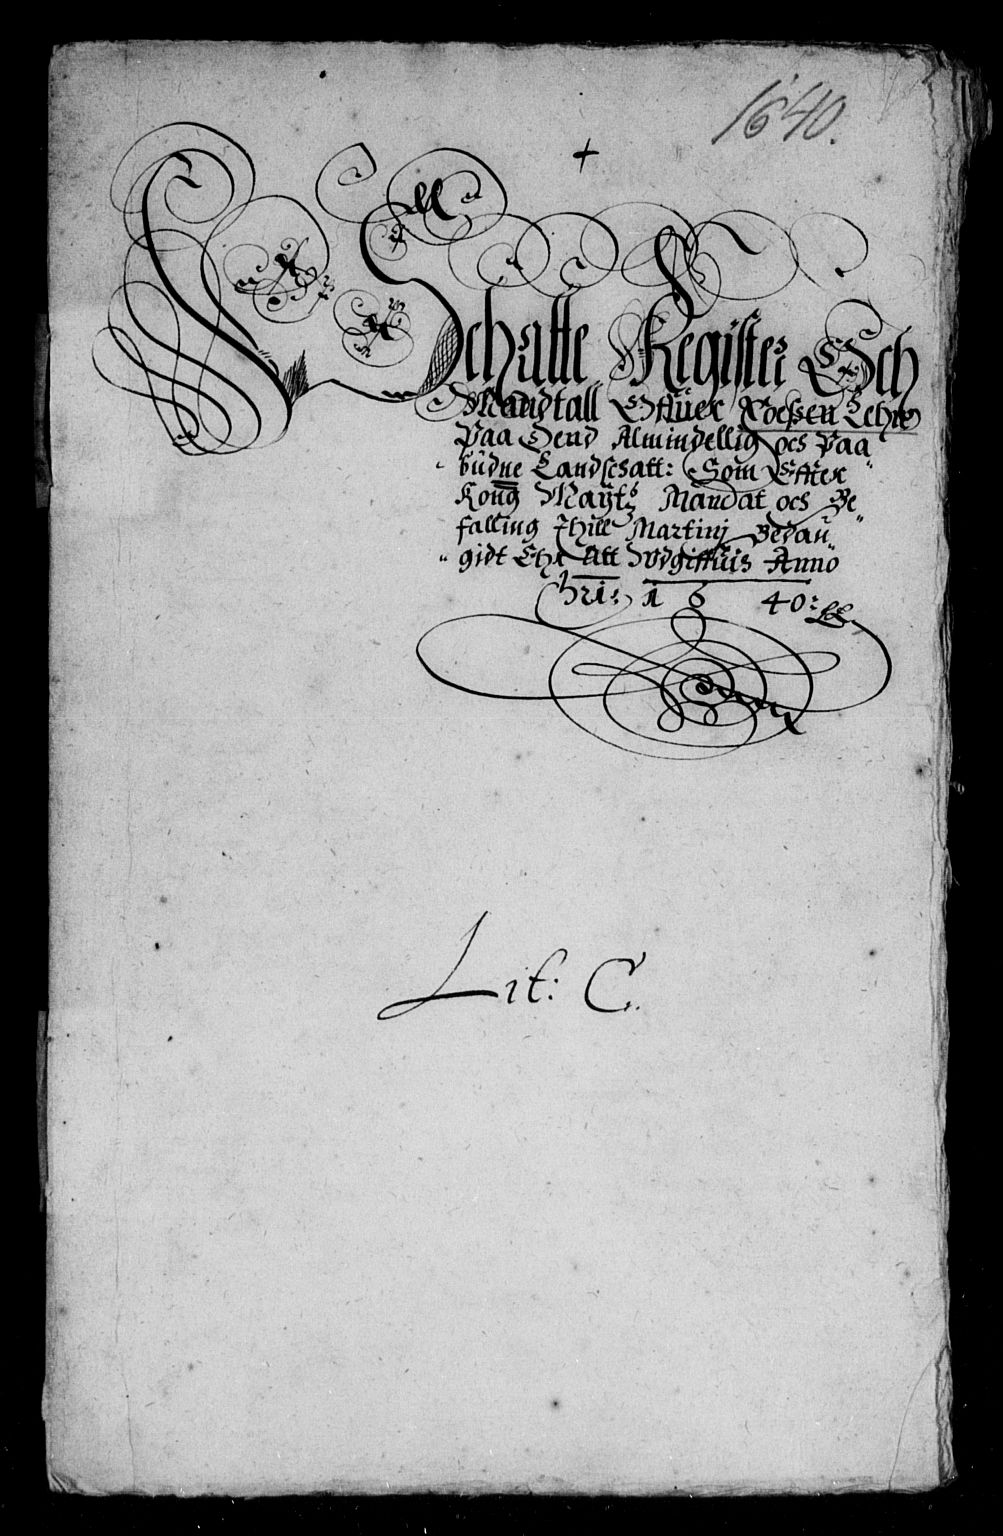 1640.
Schatte Register Och
Mandtall Offuer Koeßen Lehn
Paa Dend Almindellig ocs Paa
budne Landscsatt: Som Effter
Kong Maÿts Mandat ocs Be
falling Thill Martinj Bedau
gidt Ehr Att Vdgiffuis Anno
1640:
Lit: C.